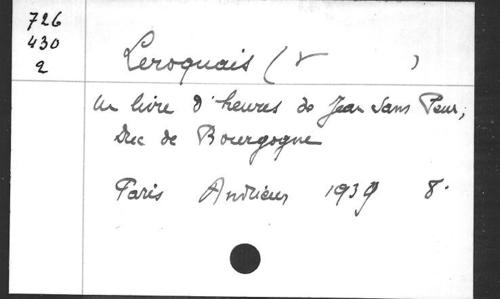 726
430
2
Leroquais (V )
Un livre d'heures de Jean sans Peur,
Duc de Bourgogne
Paris Andrieux 1939 8°